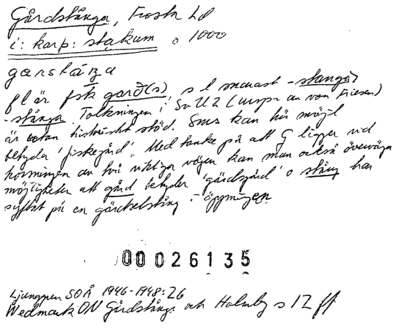 Gårdstånga, Frosta hd
i: karp: stakum o 1000
garstanga
fl är fsk garð(s) s l senast -stanga
-stånga. Tolkningen i SvU2 (urspr. av von Friesen)
är utan historiskt stöd. Sms kan här möjl
betyda 'fiskegård'. Med tanke på att G ligger vid
korsningen av två viktiga vägar kan man också överväga
möjligheten att gård betyder 'gärdsgård' o stång har
syftat på en gärdselstång i öppningen
00026135
Ljunggren SOÅ 1946-1948:26
Wedmark ON Gårdstånga och Holmby s 12 ff